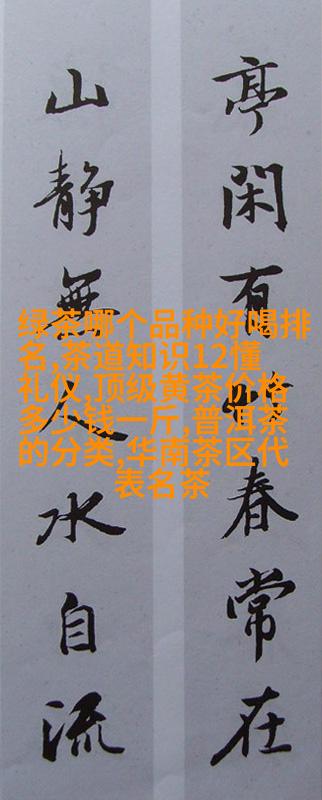 亭閑有春常在
山靜無人水自流
绿茶哪个品种好喝排
名,茶道知识12懂
礼仪,顶级黄茶价格
多少钱一斤,普洱茶
的分类,华南茶区代
表名茶